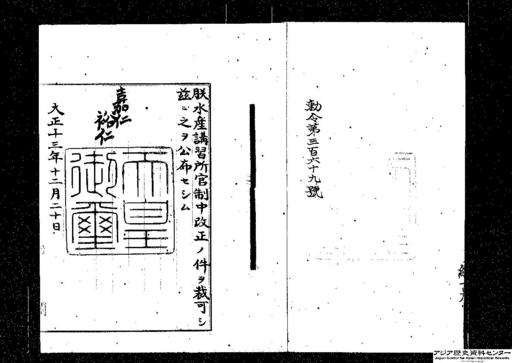 勅令第三百六十九號
朕水産講習所官制中改正ノ件ヲ裁可シ
茲ニ之ヲ公布セシム
嘉仁
裕仁
天皇
御璽
大正十三年十二月二十日
アジア歴史資料センター
Japan Center for Asian Historical Records